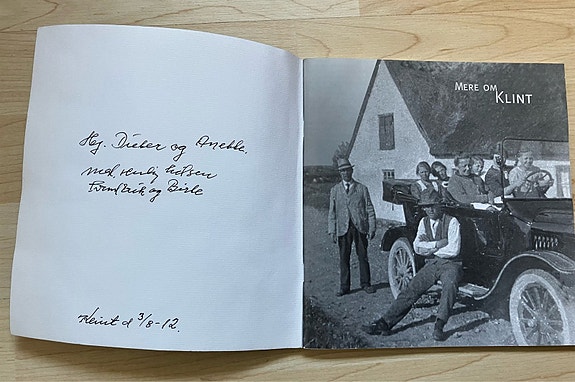 Hej. Dieter og Anette,
med venlig hilsen
og Birte
Klint d 3/8-12.
MERE OM
KLINT